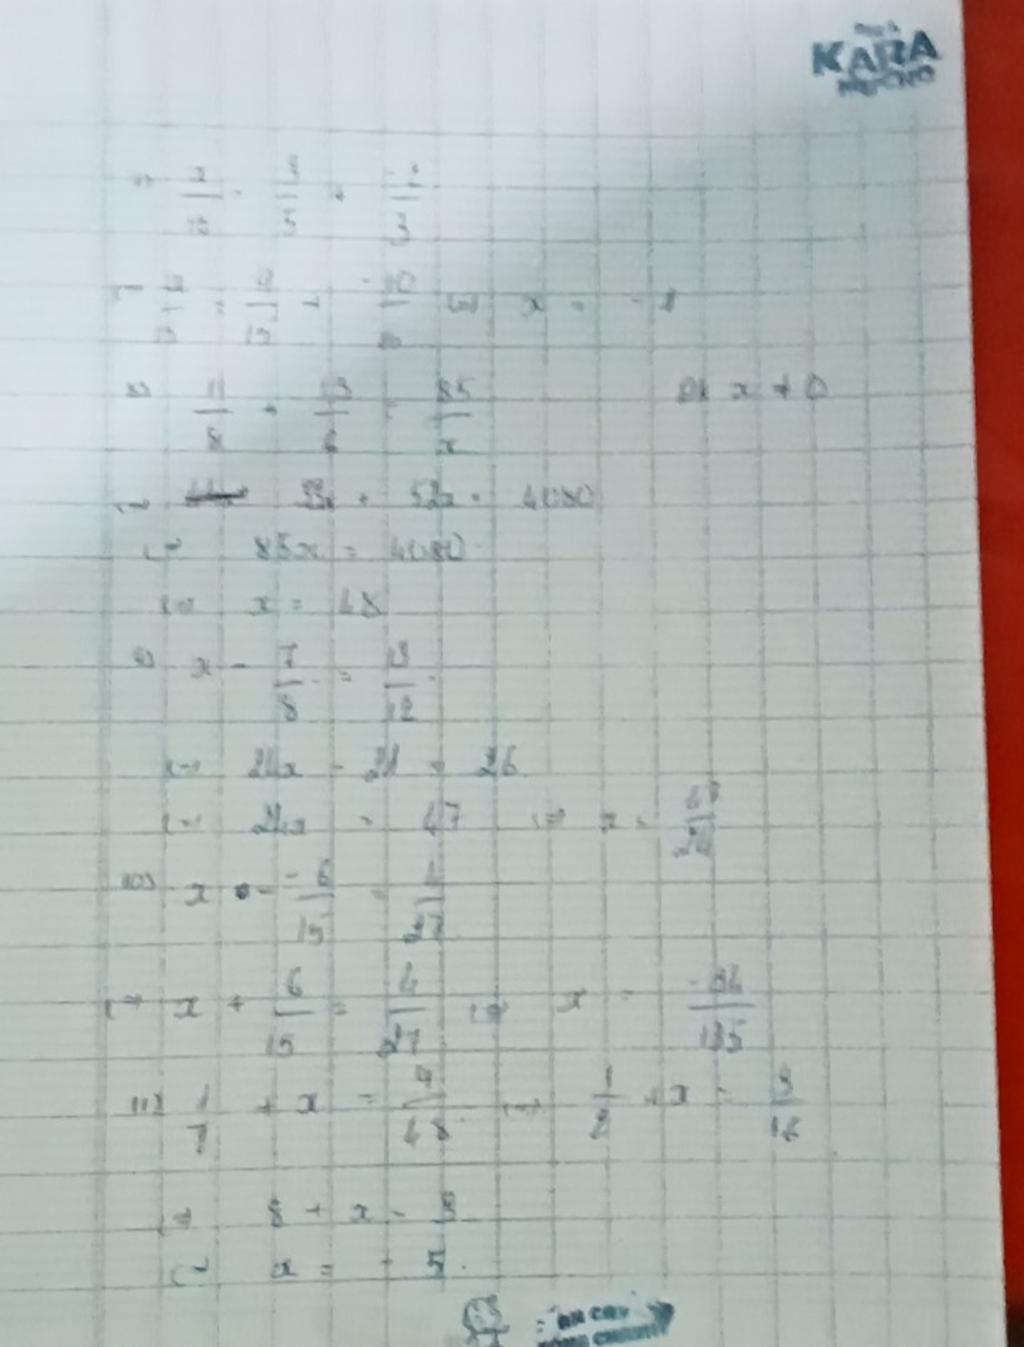 KARA
x/15 = 3/5 + -2/3
x/15 = 9/15 + -10/15 <=> x = -1
8) 11/8 + 13/6 = 85/x   ĐK x ≠ 0
<=> 33x + 52x = 4080
<=> 85x = 4080
<=> x = 48
9) x - 7/8 = 13/12
<=> 24x - 21 = 26
<=> 24x = 47 <=> x = 47/24
10) x - -6/15 = 4/27
<=> x + 6/15 = 4/27 <=> x = -34/135
11) 1/ + x = 9/48 <=> 1/2 + x = 3/16
<=> 8 + x = 3
<=> x = - 5.